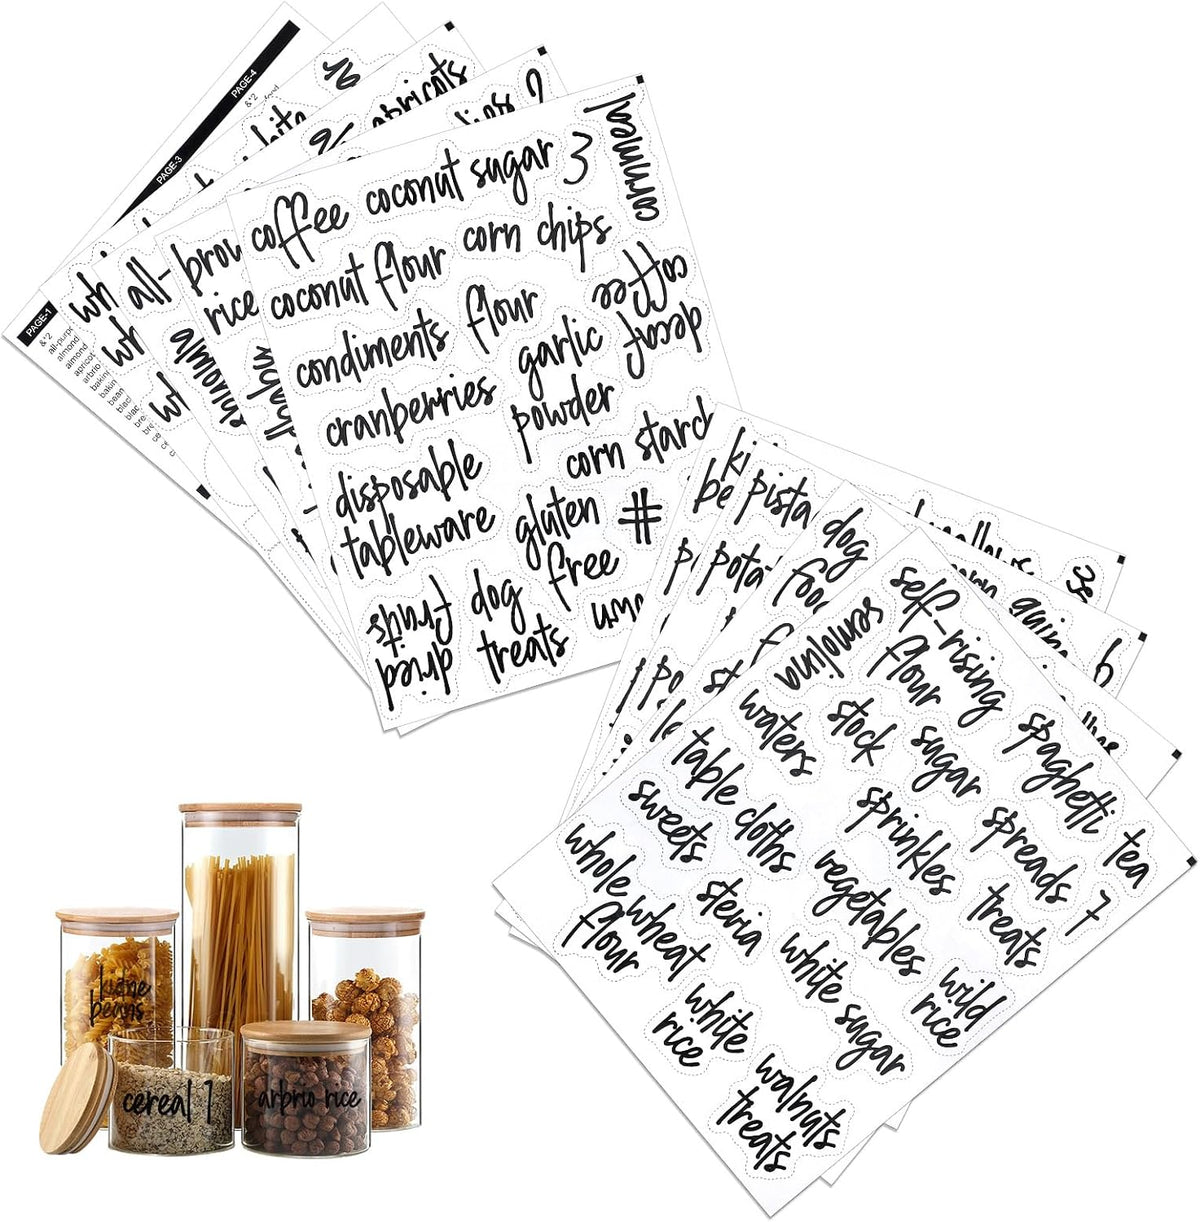 PAGE-4
&'2
PAGE-3
apricots
PAGE-1
&'2
all-purpo
almond
almond
apricot
arbrio
baking
bakin
bean
blac
bre
wh
wh
wh
all-
brow
rice
semolina
coffee
coconut sugar
3
cornmeal
coconut flour
corn chips
coffee
decaf
condiments
flour
garlic
powder
cranberries
corn starch
disposable
tableware
gluten
free
#
dried
fruits
dog
treats
pista
pota
dog
food
again
6
self-rising
flour
semolina
spaghetti
waters
stock
sugar
table cloths
sprinkles
spreads
tea
sweets
vegetables
treats
7
whole wheat
flour
stevia
white sugar
wild
rice
white
rice
walnuts
treats
kidne
beans
cereal 1
arbrio rice